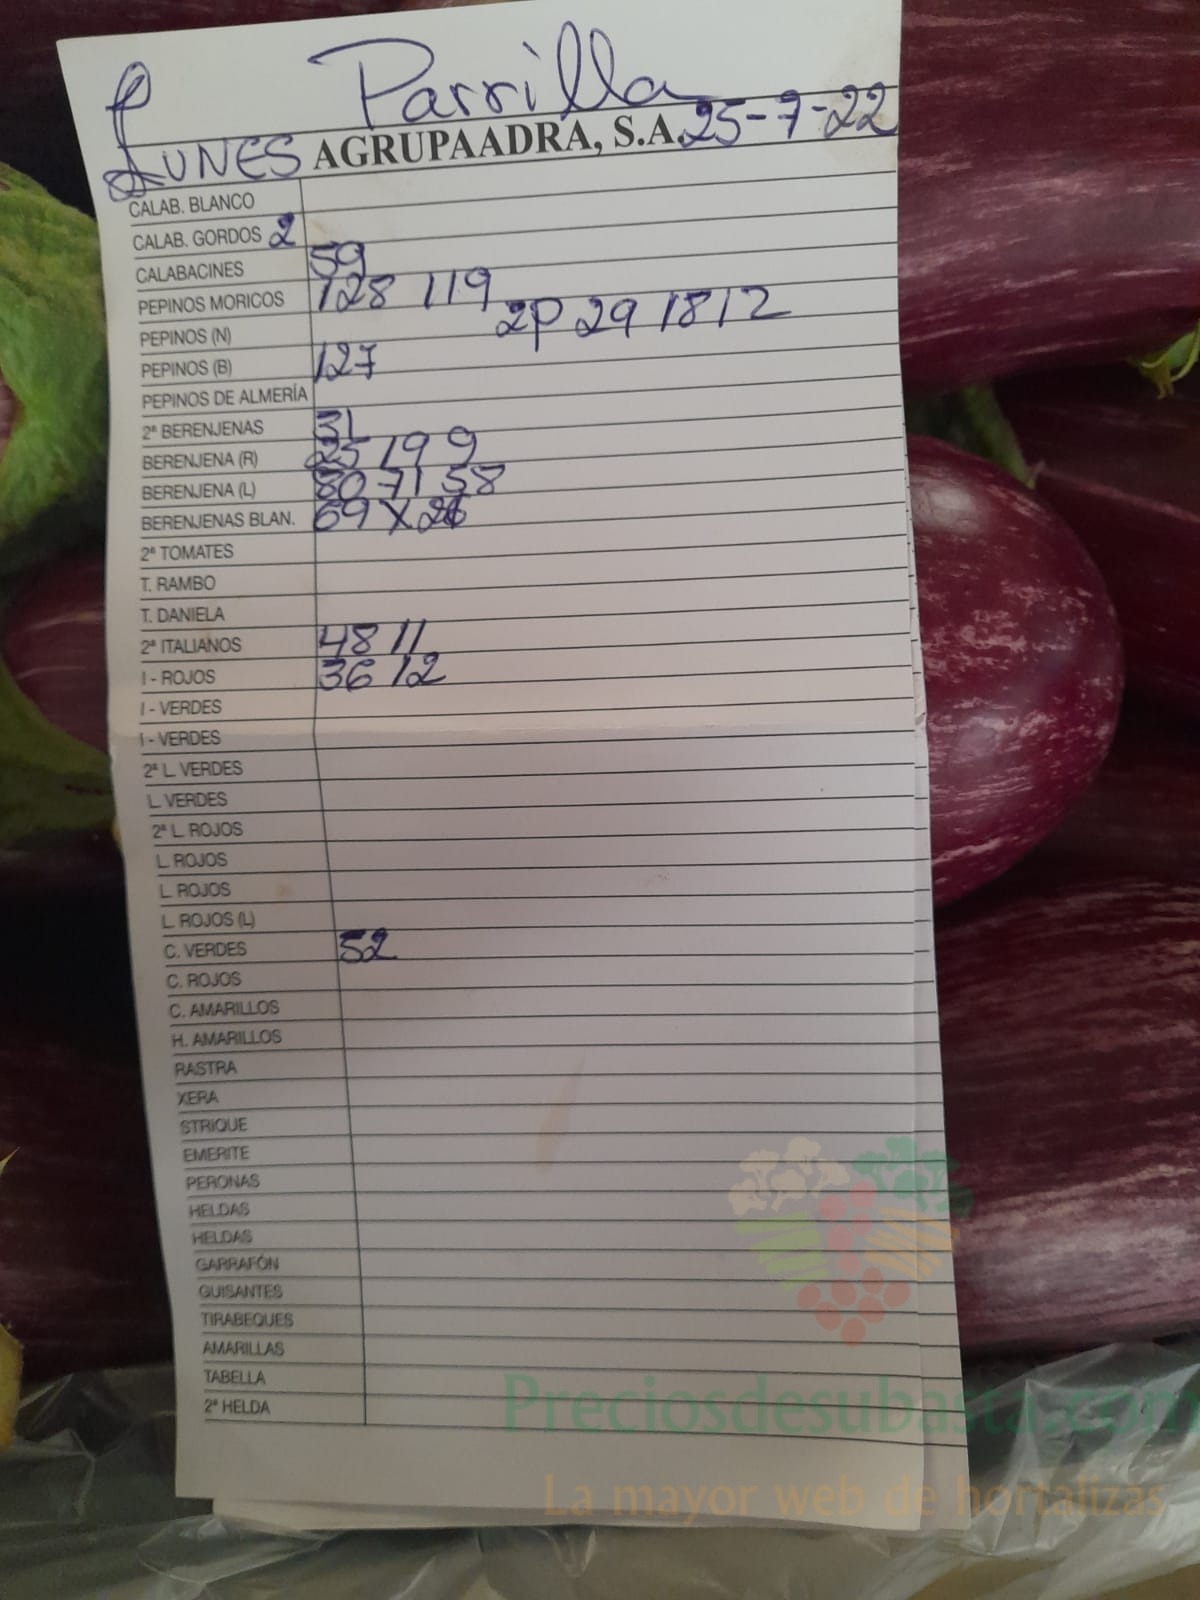 Parrilla
LUNES AGRUPAADRA, S.A. 25-7-22
CALAB. BLANCO
CALAB. GORDOS 2
CALABACINES 59
PEPINOS MORICOS 128 119
PEPINOS (N) 2P 29 18 12
PEPINOS (B) 127
PEPINOS DE ALMERÍA
2ª BERENJENAS 31
BERENJENA (R) 25 19 9
BERENJENA (L) 80 71 58
BERENJENAS BLAN. 69 X
2ª TOMATES
T. RAMBO
T. DANIELA
2ª ITALIANOS 48 11
I - ROJOS 36 12
I - VERDES
I - VERDES
2ª L. VERDES
L. VERDES
2ª L. ROJOS
L. ROJOS
L. ROJOS
L. ROJOS (L)
C. VERDES 52
C. ROJOS
C. AMARILLOS
H. AMARILLOS
RASTRA
XERA
STRIQUE
EMERITE
PERONAS
HELDAS
HELDAS
GARRAFÓN
GUISANTES
TIRABEQUES
AMARILLAS
TABELLA
2ª HELDA
Preciosdesubasta.com
La mayor web de hortalizas